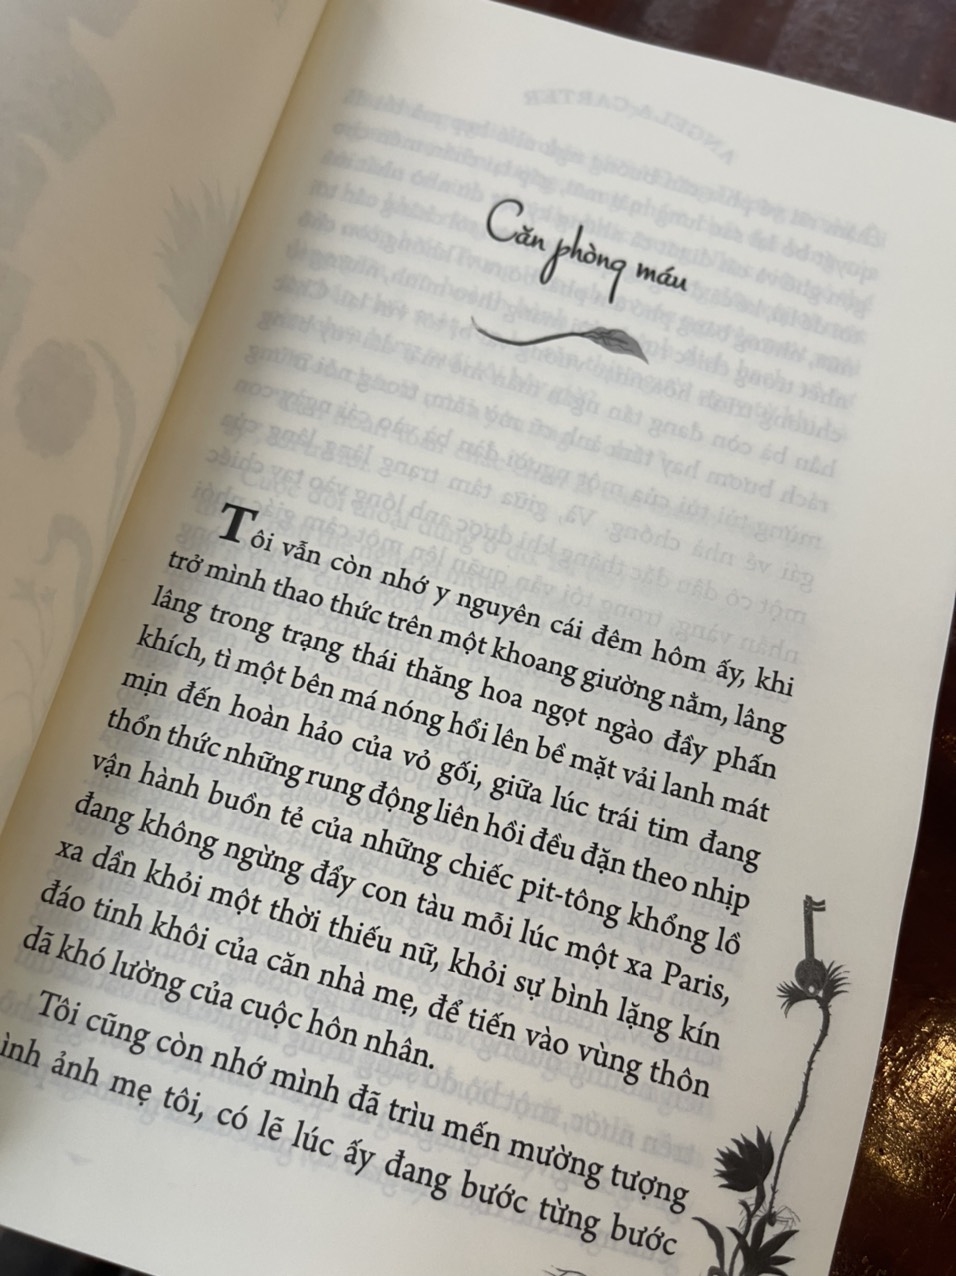 Căn phòng máu
Tôi vẫn còn nhớ y nguyên cái đêm hôm ấy, khi
trở mình thao thức trên một khoang giường nằm, lâng
lâng trong trạng thái thăng hoa ngọt ngào đầy phấn
khích, tì một bên má nóng hổi lên bề mặt vải lanh mát
mịn đến hoàn hảo của vỏ gối, giữa lúc trái tim đang
thổn thức những rung động liên hồi đều đặn theo nhịp
vận hành buồn tẻ của những chiếc pit-tông khổng lồ
đang không ngừng đẩy con tàu mỗi lúc một xa Paris,
xa dần khỏi một thời thiếu nữ, khỏi sự bình lặng kín
đáo tinh khôi của căn nhà mẹ, để tiến vào vùng thôn
dã khó lường của cuộc hôn nhân.
Tôi cũng còn nhớ mình đã trìu mến mường tượng
ình ảnh mẹ tôi, có lẽ lúc ấy đang bước từng bước